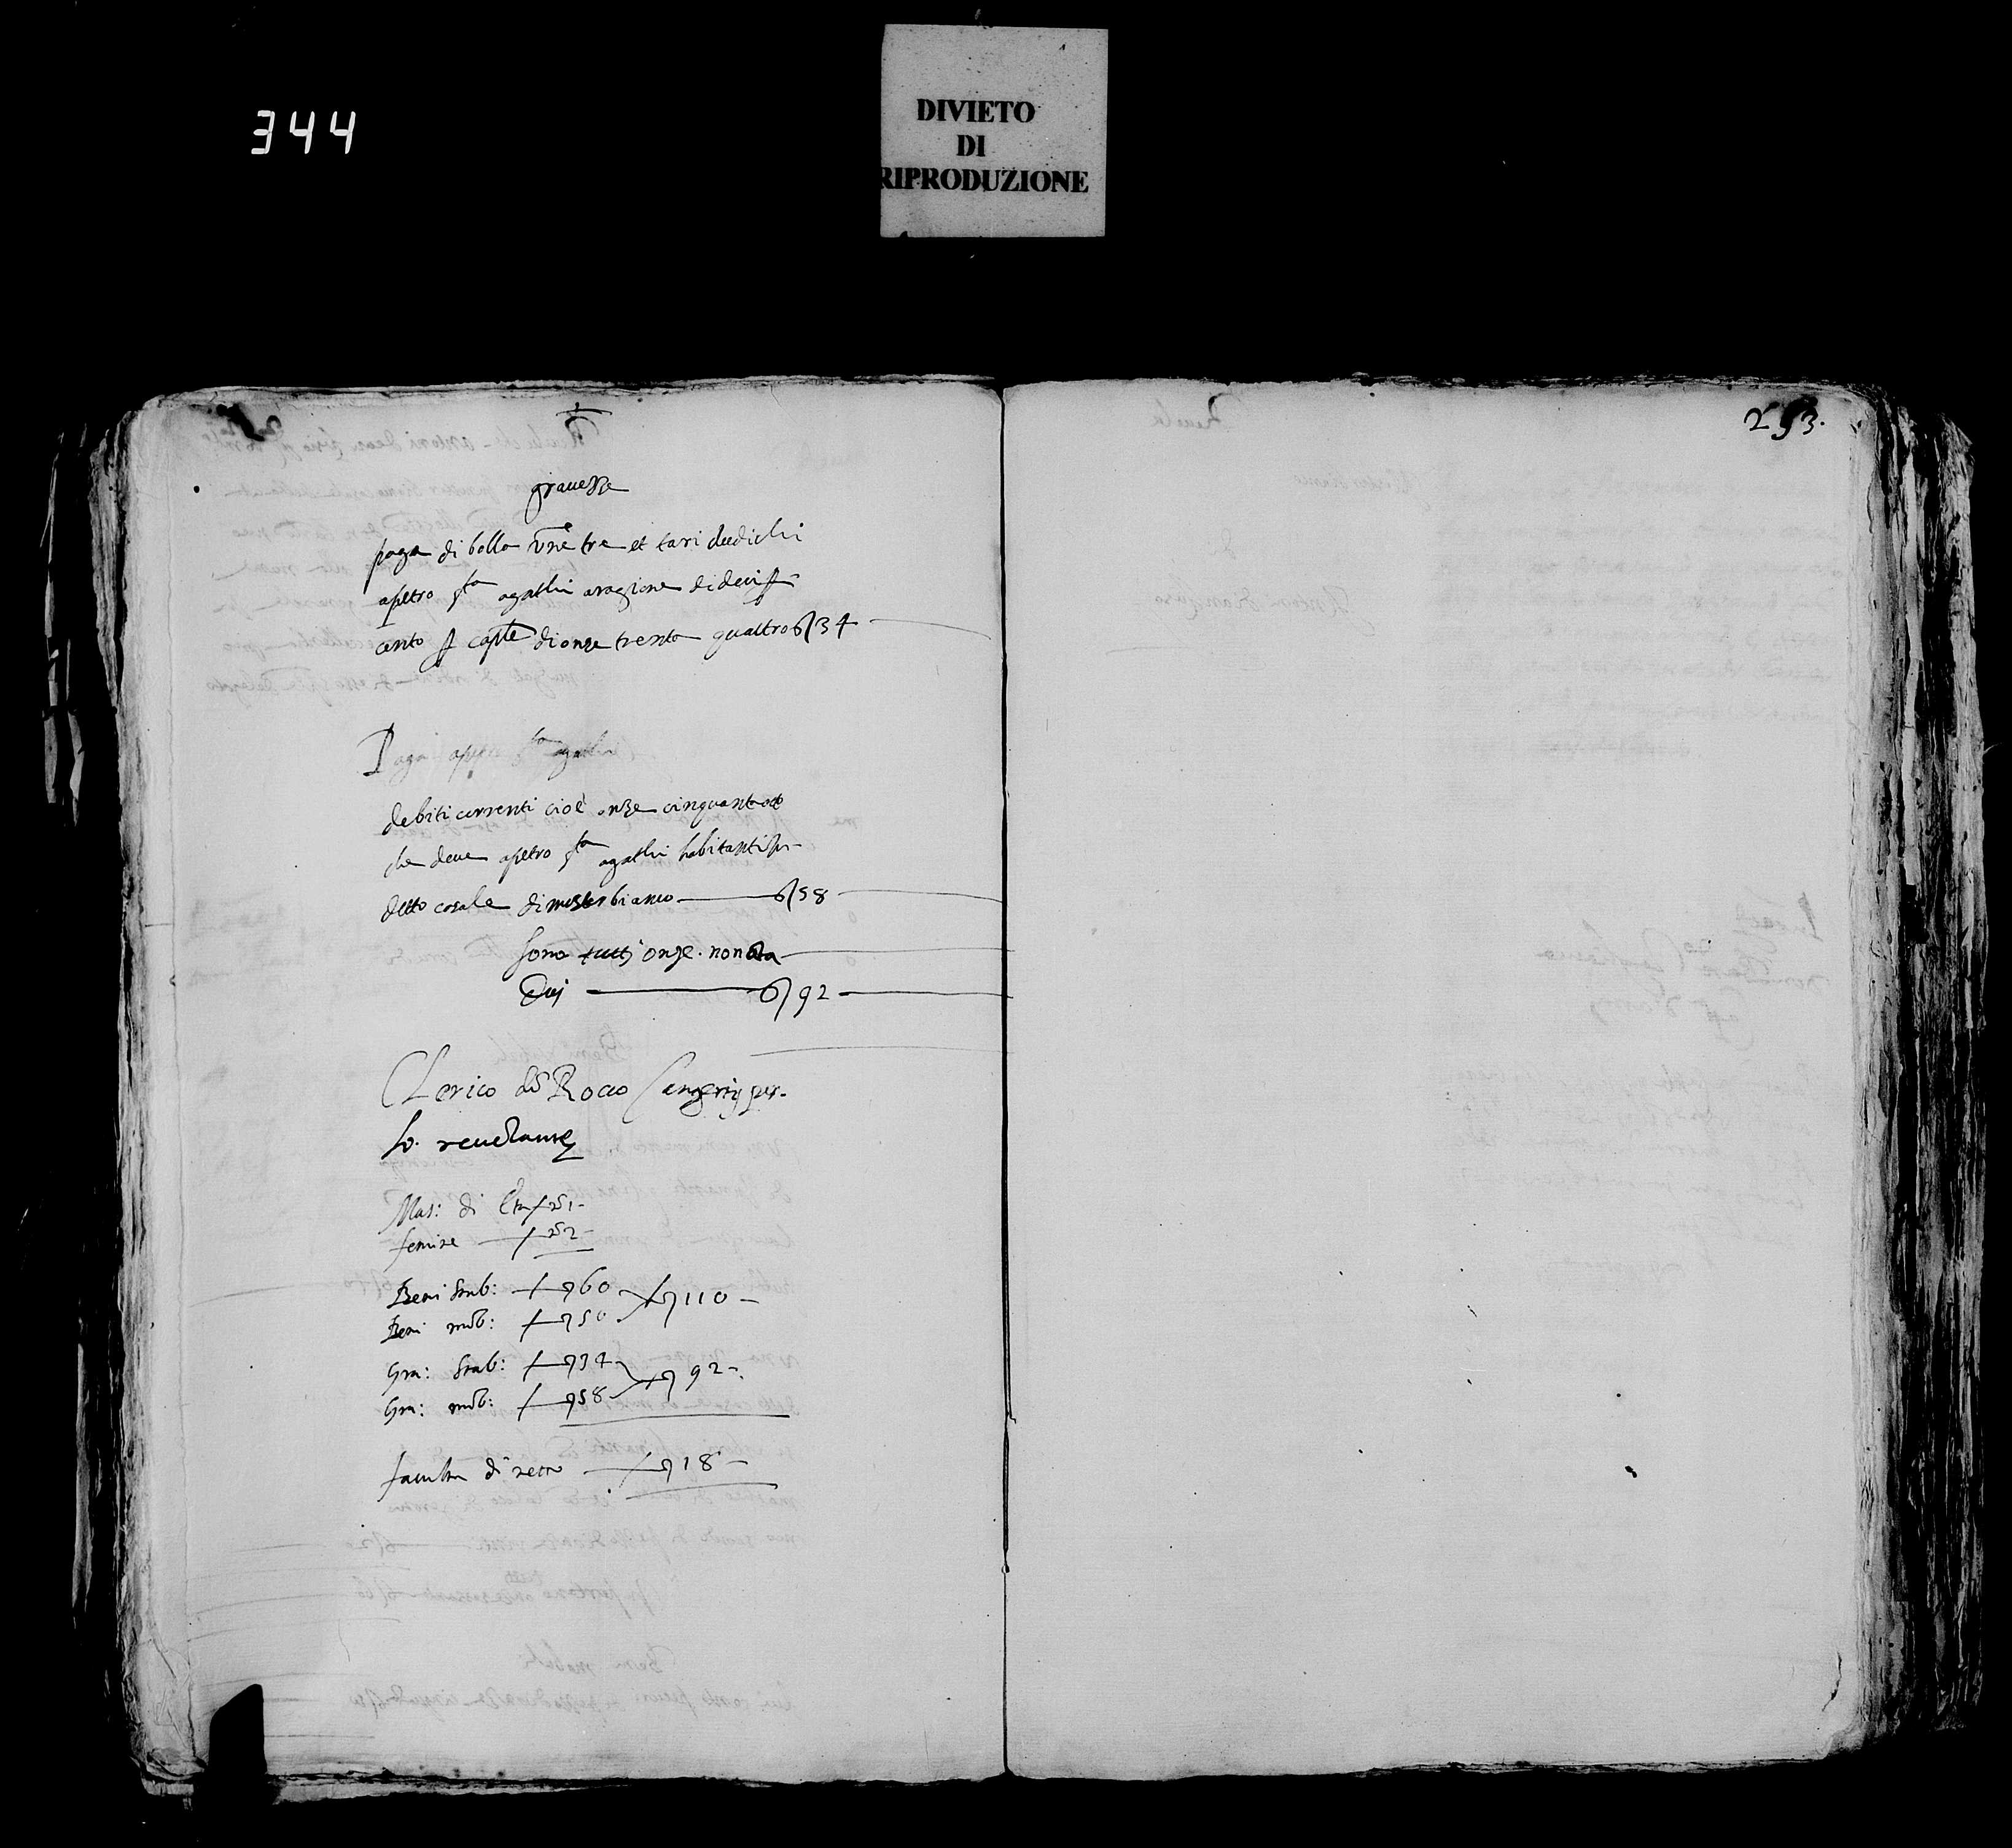 344
DIVIETO
DI
RIPRODUZIONE
293.
gravezze
paga di bolla unze tre et tari dudichi
apetro sta agathi a ragione di deci per
cento per caple di onze trenta quattro 34
Paga sta agathi
debiti correnti cioè onze cinquantaotto
che deve apetro sta agathi habitanti in
detto casale di mosterbianco 58
sono tutti onze nonanta
Dui 92
Clerico Don Rocco per
lo revelante
Mas: di 1
femine 2
Beni stab: 60 110
Beni mob: 50
Gra: stab: 34 92
Gra: mob: 58
faculta di netto 18